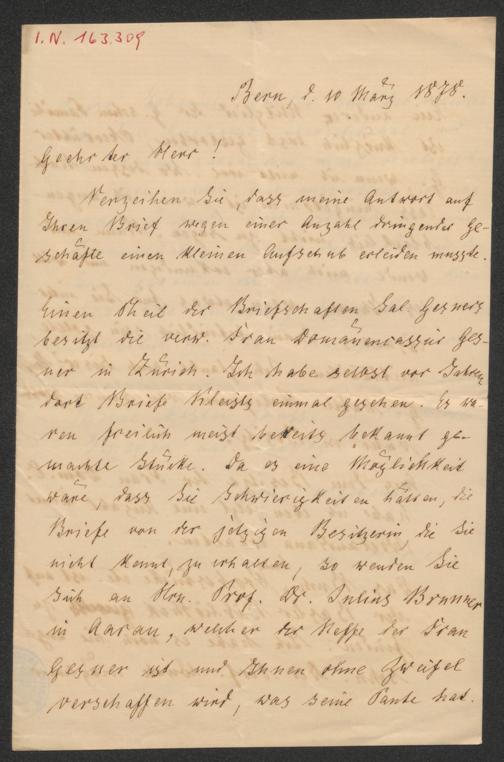 I. N. 163.309
Bern, d. 10 März 1878.
Geehrter Herr!
Verzeihen Sie, dass meine Antwort auf
Ihren Brief wegen einer Anzahl dringender Ge-
schäfte einen kleinen Aufschub erleiden musste.
Einen Theil der Briefschaften Sal. Gesners
besitzt die verw. Frau Domänencassier Ges-
ner in Zürich. Ich habe selbst vor Jahren
dort Briefe Kleists einmal gesehen. Es wa-
ren freilich meist bereits bekannt ge-
machte Stücke. Da es eine Möglichkeit
wäre, dass Sie Schwierigkeiten hätten, die
Briefe von der jetzigen Besitzerin, die Sie
nicht kennt, zu erhalten, so wenden Sie
sich an Hrn. Prof. Dr. Julius Brunner
in Aarau, welcher der Neffe der Frau
Gesner ist und Ihnen ohne Zweifel
verschaffen wird, was seine Tante hat.